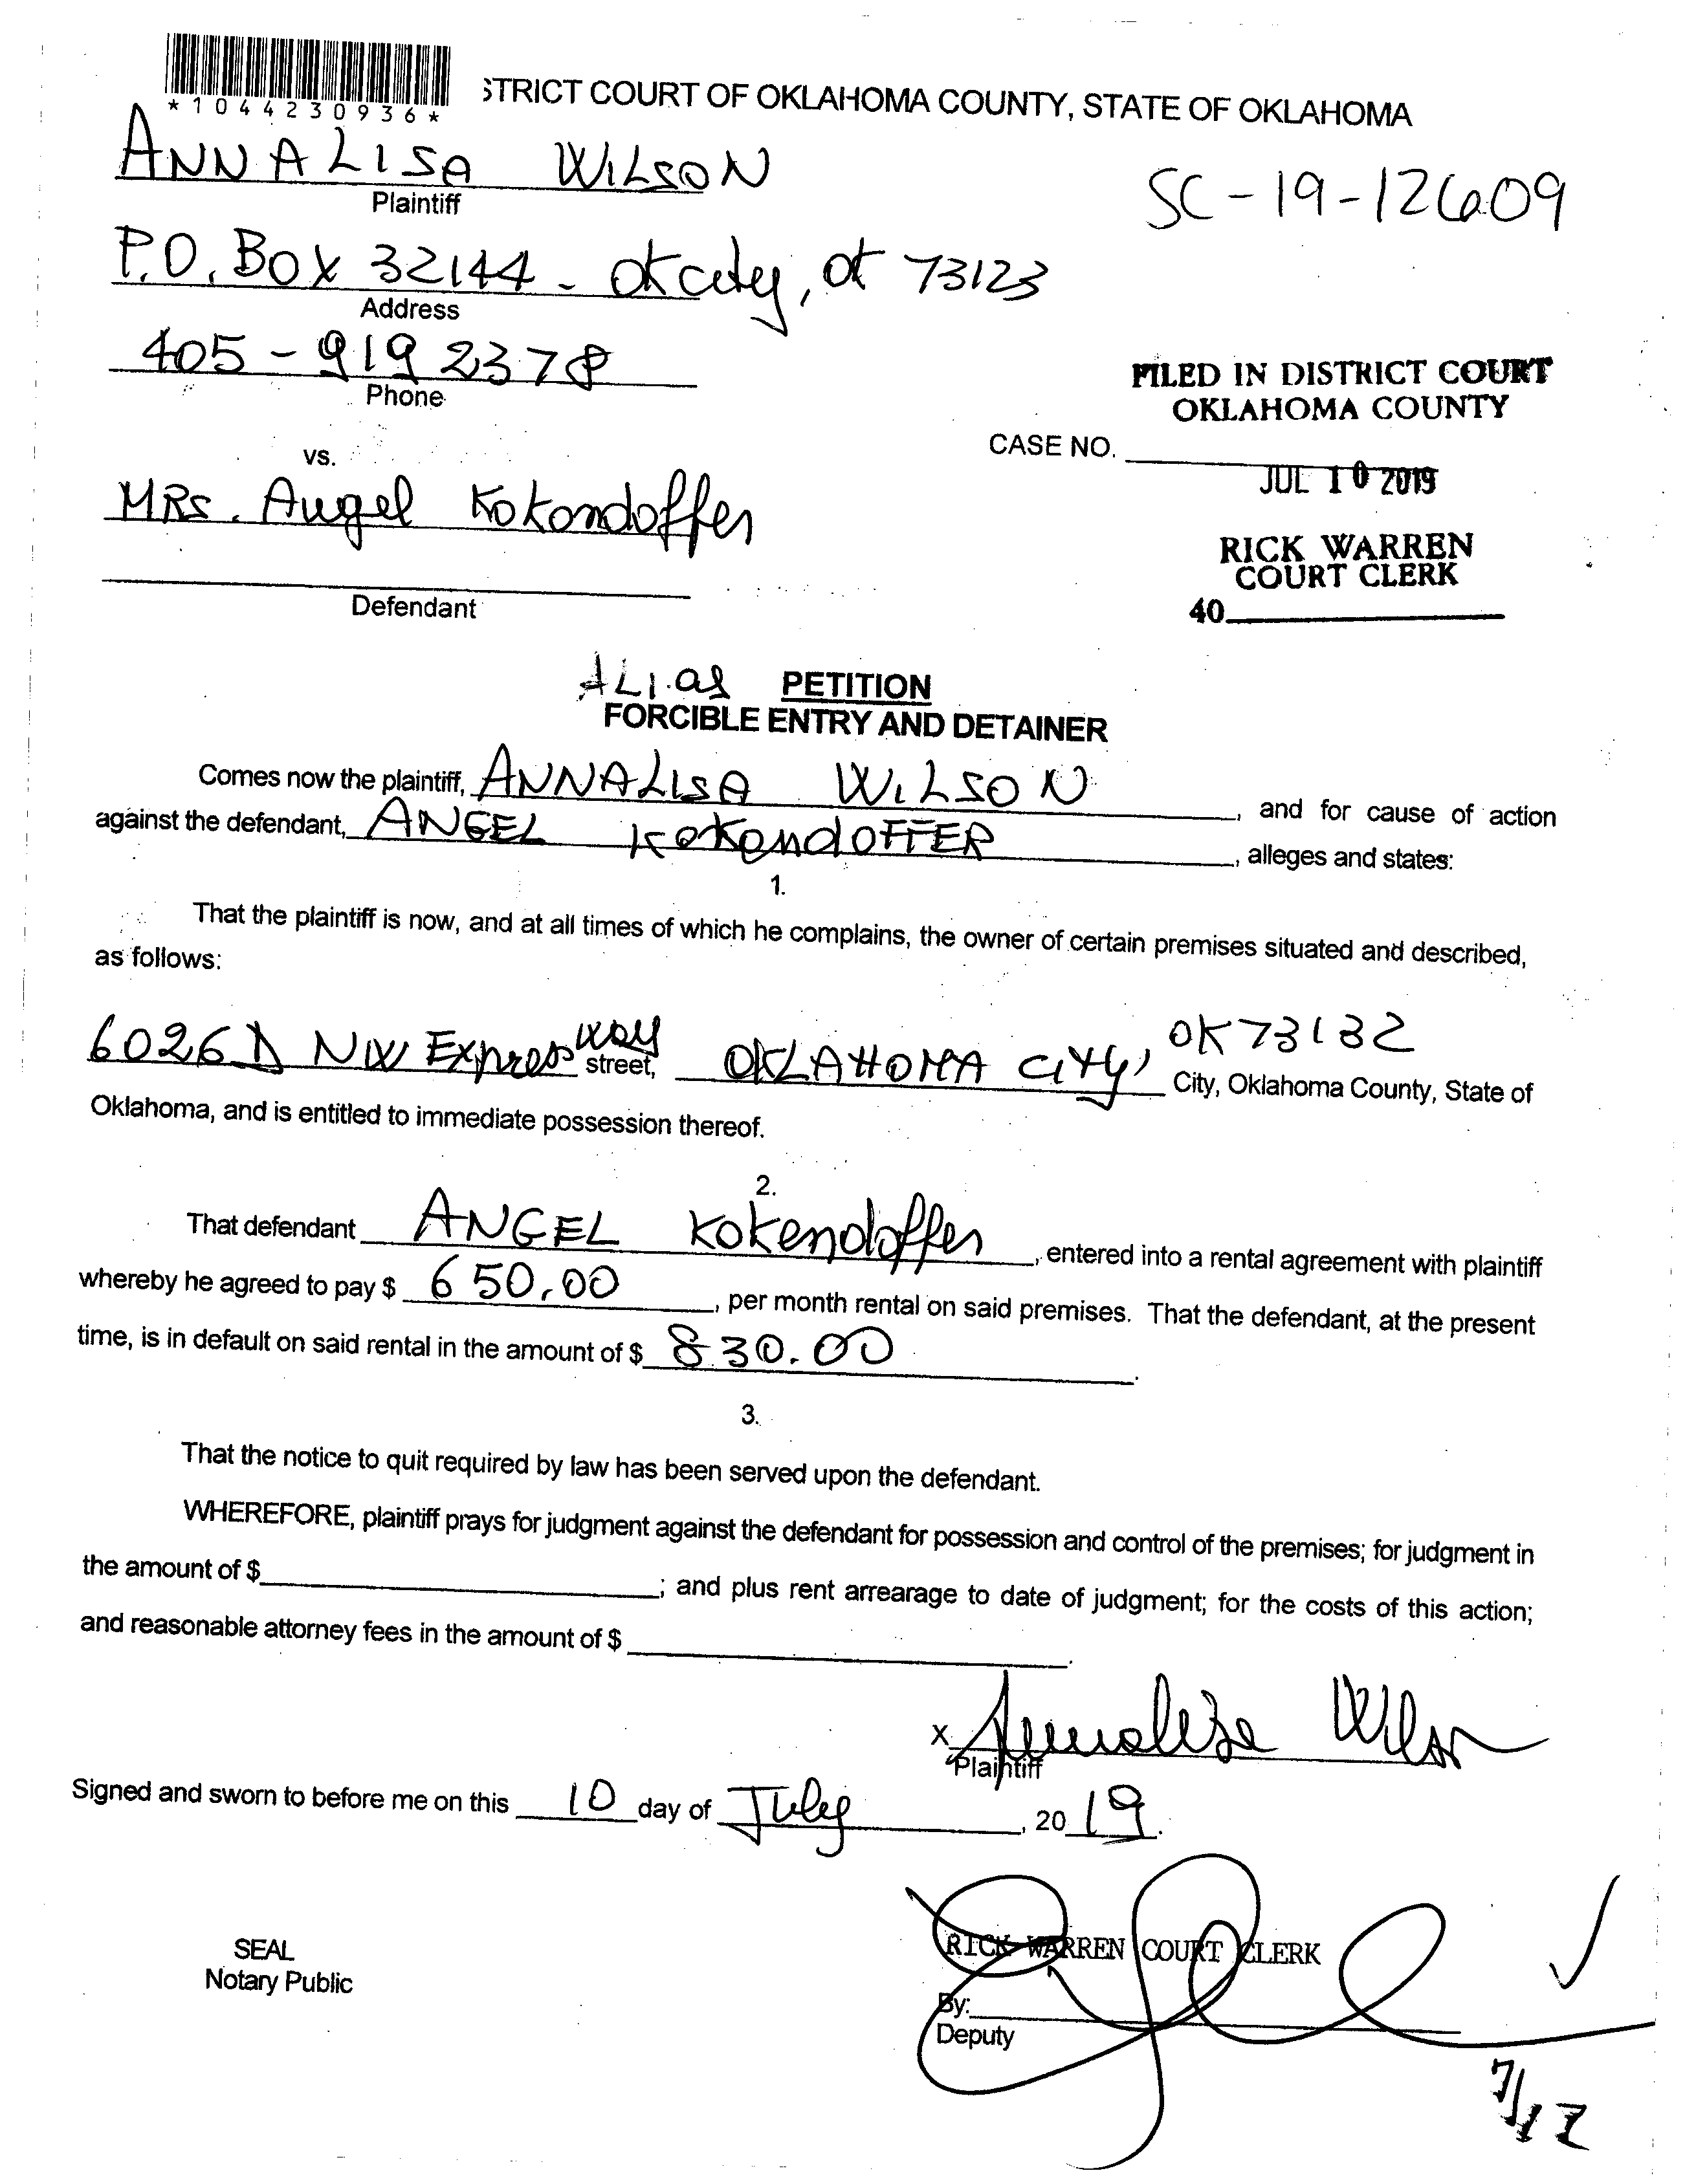 *1044230936*
STRICT COURT OF OKLAHOMA COUNTY, STATE OF OKLAHOMA
ANNALISA WILSON
Plaintiff
SC-19-12609
P.O. Box 32144 - OK city, OK 73123
Address
405-919 2378
Phone
FILED IN DISTRICT COURT
OKLAHOMA COUNTY
vs.
CASE NO.
JUL 10 2019
MRS. Angel Kokondoffer
RICK WARREN
COURT CLERK
40
Defendant
ALias PETITION
FORCIBLE ENTRY AND DETAINER
Comes now the plaintiff, ANNALISA WILSON, and for cause of action
against the defendant, ANGEL KoKendOFFER, alleges and states:
1.
That the plaintiff is now, and at all times of which he complains, the owner of certain premises situated and described,
as follows:
6026 D NW Express way street, OKLAHOMA City, OK 73132 City, Oklahoma County, State of
Oklahoma, and is entitled to immediate possession thereof.
2.
That defendant ANGEL Kokendoffer, entered into a rental agreement with plaintiff
whereby he agreed to pay $ 650.00, per month rental on said premises. That the defendant, at the present
time, is in default on said rental in the amount of $ 830.00.
3.
That the notice to quit required by law has been served upon the defendant.
WHEREFORE, plaintiff prays for judgment against the defendant for possession and control of the premises; for judgment in
the amount of $ ; and plus rent arrearage to date of judgment; for the costs of this action;
and reasonable attorney fees in the amount of $ .
X Annalisa Wilson
Plaintiff
Signed and sworn to before me on this 10 day of July, 2019.
SEAL
Notary Public
RICK WARREN COURT CLERK
By:
Deputy
7/17